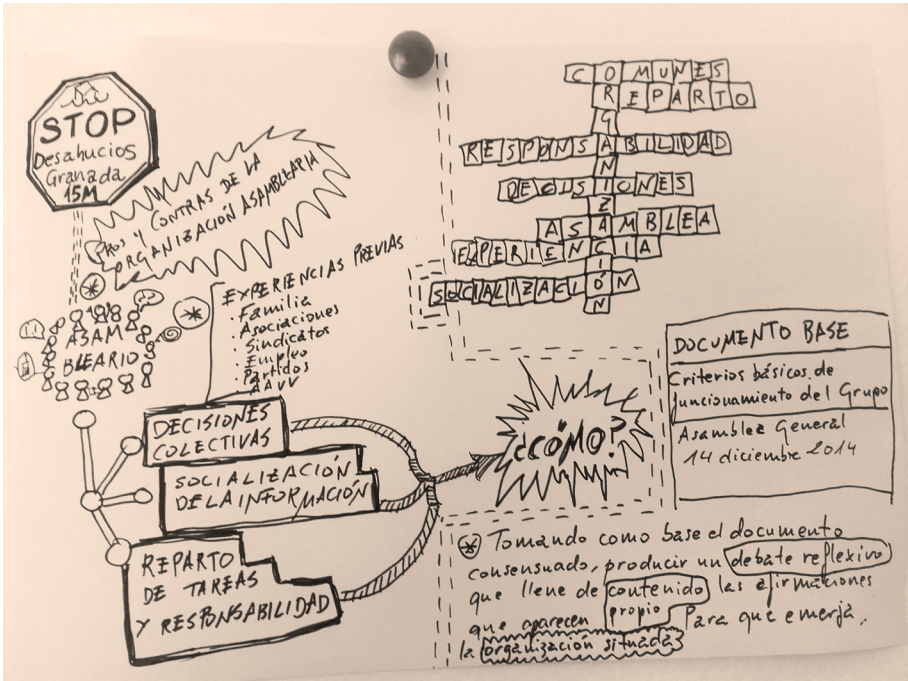 STOP
Desahucios
Granada
15M
PROS Y CONTRAS DE LA
ORGANIZACIÓN ASAMBLEARIA
EXPERIENCIAS PREVIAS
· Familia
· Asociaciones
· Sindicatos
· Empleo
· Partidos
· AAVV
ASAM
BLEARIO
DECISIONES
COLECTIVAS
SOCIALIZACIÓN
DE LA INFORMACIÓN
REPARTO
DE TAREAS
Y RESPONSABILIDAD
COMUNES
REPARTO
G
RESPONSABILIDAD
N
DECISIONES
Z
ASAMBLEA
EXPERIENCIA
I
SOCIALIZACIÓN
N
¿CÓMO?
DOCUMENTO BASE
Criterios básicos de
funcionamiento del Grupo
Asamblea General
14 diciembre 2014
Tomando como base el documento
consensuado, producir un debate reflexivo
que llene de contenido las afirmaciones
que aparecen propio Para que emerja
la organización situada